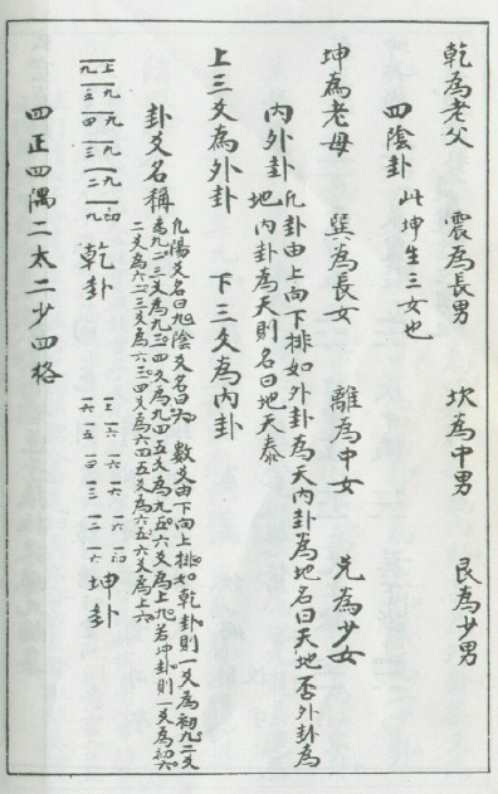 乾為老父 震為長男 坎為中男 艮為少男
四陰卦 此坤生三女也
坤為老母 巽為長女 離為中女 兌為少女
內外卦 凡卦由上向下排如外卦為天內卦為地名曰天地否外卦為
地內卦為天則名曰地天泰
上三爻為外卦 下三爻為內卦
卦爻名稱 凡陽爻名曰九陰爻名曰六 數爻由下向上排如乾卦則一爻為初九二爻
為九二三爻為九三四爻為九四五爻為九五六爻為上九若坤卦則一爻為初六
二爻為六二三爻為六三四爻為六四五爻為六五六爻為上六
上九 九五 九四 九三 九二 初九 乾卦 上六 六五 六四 六三 六二 初六 坤卦
四正四隅二太二少四格